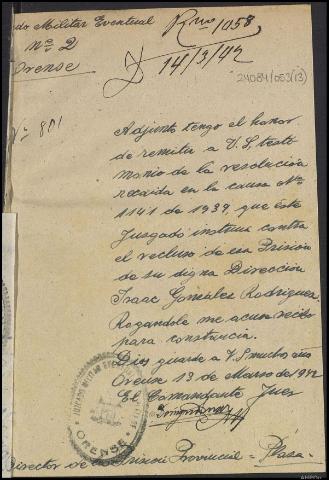 do Militar Eventual
nº 2
Orense
Rmos 1058
14/3/42
24084/053(13)
Nº 801
Adjunto tengo el honor
de remitir a V.S. testi
monio de la resolución
recaida en la causa Nº
1141 de 1939, que este
Juzgado instruia contra
el recluso de esa Prisión
de su digna Dirección
Isaac González Rodríguez.
Rogandole me acuse recibo
para constancia.
Dios guarde a V.S. muchos años
Orense 13 de Marzo de 1942
El Comandante Juez
ORENSE
Director de la Prisión Provincial = Plaza -